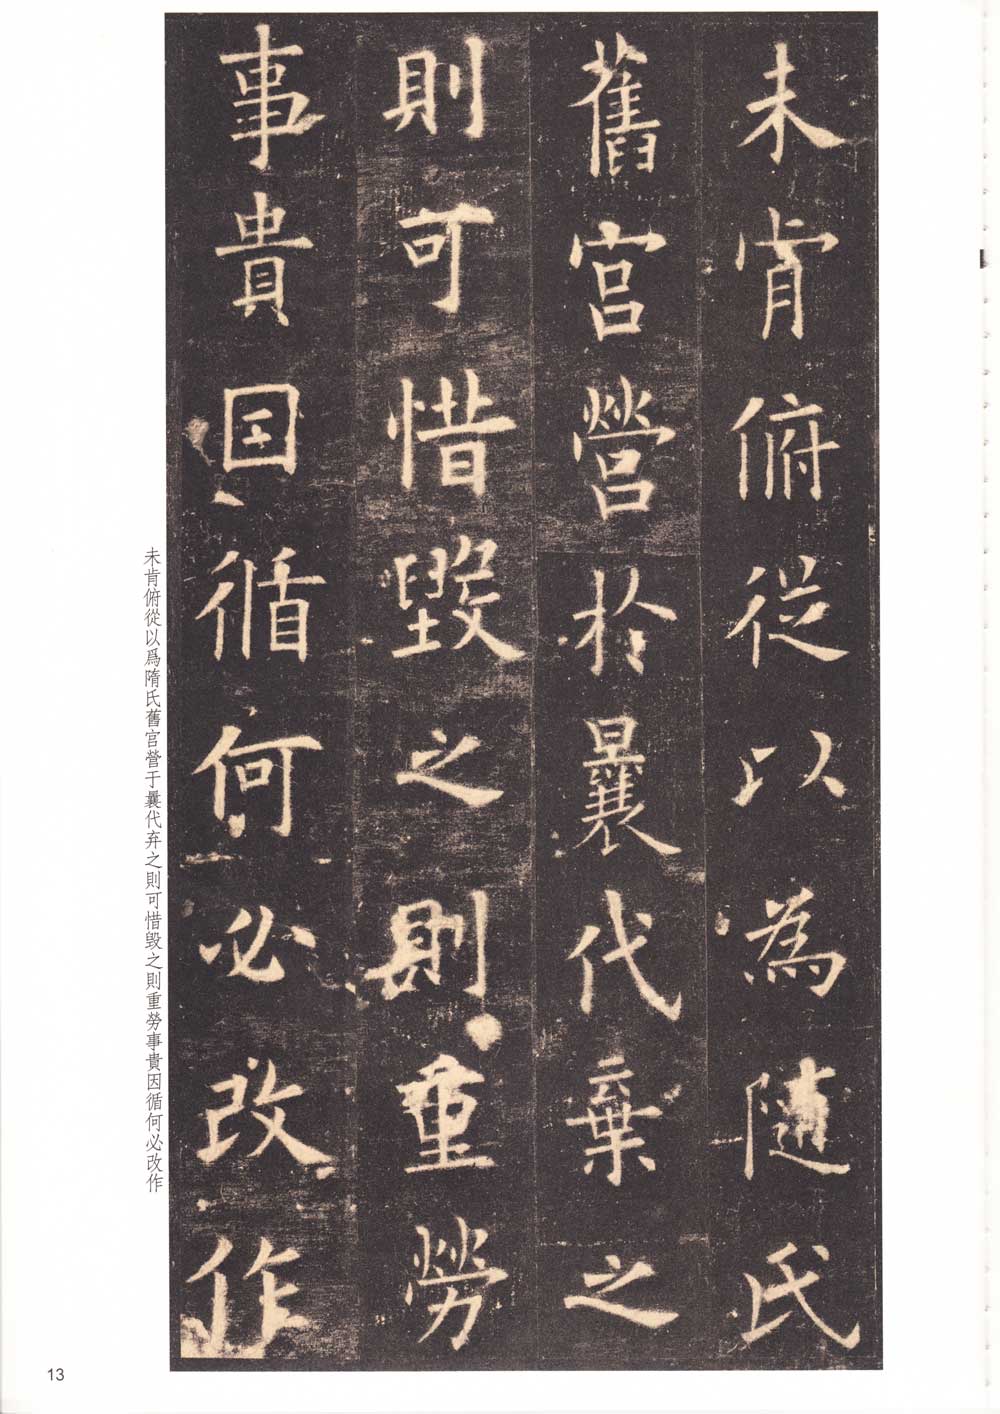 未肯俯從以為隨氏
舊宮營於曩代棄之
則可惜毀之則重勞
事貴因循何必改作
未肯俯從以爲隋氏舊宮營于曩代弃之則可惜毀之則重勞事貴因循何必改作
13